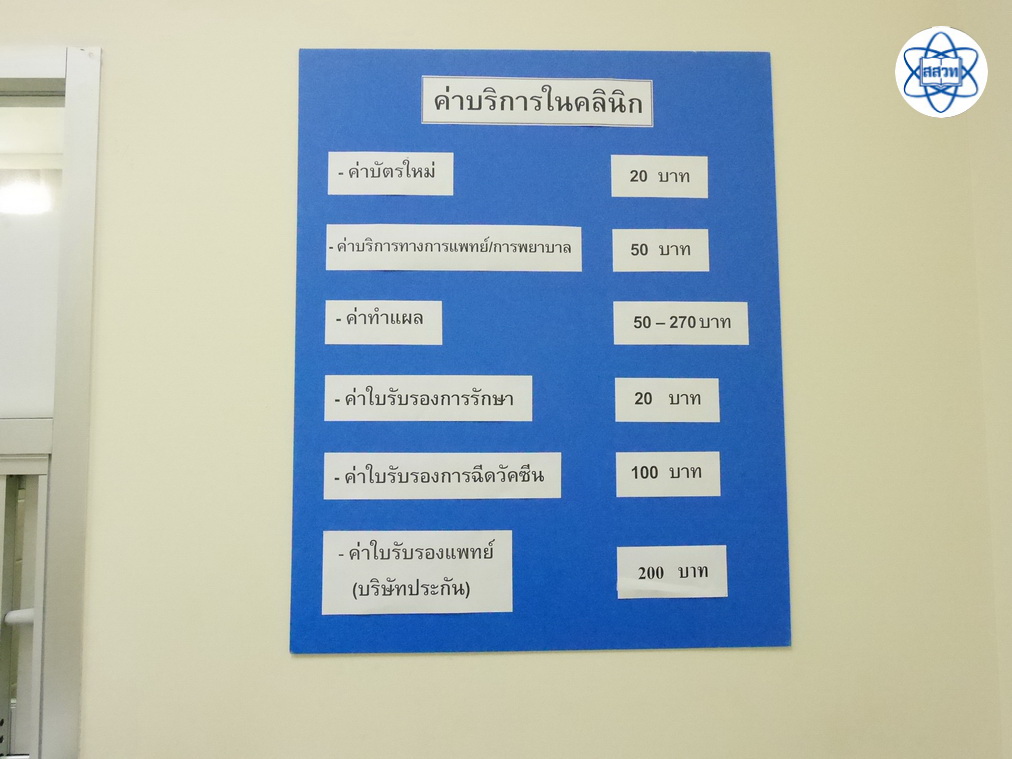 สสวท
ค่าบริการในคลินิก
- ค่าบัตรใหม่ 20 บาท
- ค่าบริการทางการแพทย์/การพยาบาล 50 บาท
- ค่าทำแผล 50 – 270 บาท
- ค่าใบรับรองการรักษา 20 บาท
- ค่าใบรับรองการฉีดวัคซีน 100 บาท
- ค่าใบรับรองแพทย์
(บริษัทประกัน) 200 บาท